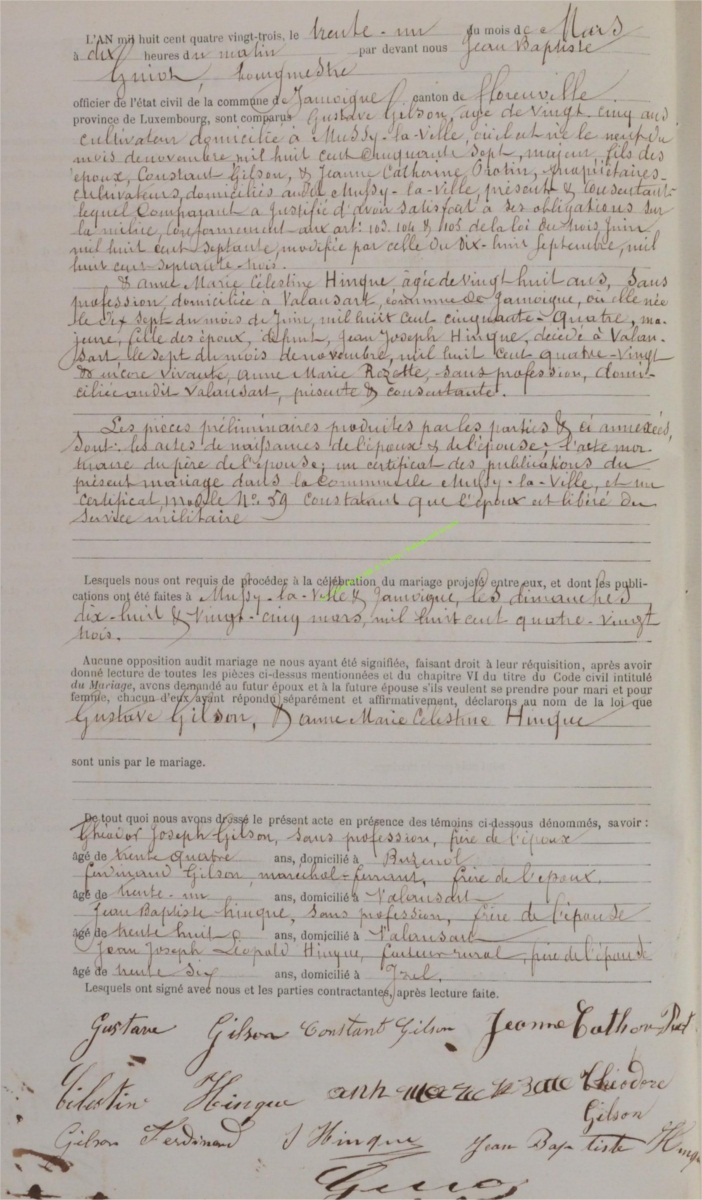 L'AN mil huit cent quatre vingt-trois, le trente-un du mois de Mars
à dix heures du matin par devant nous Jean Baptiste
bourgmestre
officier de l'état civil de la commune de Jamoigne canton de florenville
province de Luxembourg, sont comparus Gustave Gilson, âgé de vingt-cinq ans
cultivateur domicilié à Mussy-la-Ville, où il est né le neuf du
mois de novembre, mil huit cent cinquante sept, majeur, fils des
époux, Constant Gilson, & Jeanne Catherine propriétaires-
cultivateurs, domiciliés audit Mussy-la-Ville, présents & consentants
lequel Comparant a justifié d'avoir satisfait à ses obligations sur
la milice, conformément aux art: 103. 104 & 105 de la loi du trois Juin
mil huit cent septante, modifiée par celle du dix-huit septembre, mil
huit cent septante-trois.
& anne Marie Célestine Hinque, âgée de vingt huit ans, sans
profession, domiciliée à Valansart, commune de Jamoigne, où elle née
le dix sept du mois de Juin, mil huit cent cinquante-quatre, ma-
jeure, fille des époux, défunt, Jean Joseph Hinque, décédé à Valan-
sart, le sept du mois de novembre, mil huit cent quatre-vingt
& encore vivante, anne Marie Rozette, sans profession, domi-
ciliée audit Valansart, présente & consentante.
Les pièces préliminaires produites par les parties & ci annexées,
sont: les actes de naissances de l'époux & de l'épouse; l'acte mor-
tuaire du père de l'épouse; un certificat des publications du
présent mariage dans la commune de Mussy-la-Ville, et un
certificat modèle N° 59 constatant que l'époux est libéré du
service militaire
Lesquels nous ont requis de procéder à la célébration du mariage projeté entre eux, et dont les publi-
cations ont été faites à Mussy-la-Ville & Jamoigne, les dimanches
dix-huit & vingt-cinq mars, mil huit cent quatre-vingt
trois.
Aucune opposition audit mariage ne nous ayant été signifiée, faisant droit à leur réquisition, après avoir
donné lecture de toutes les pièces ci-dessus mentionnées et du chapitre VI du titre du Code civil intitulé
du Mariage, avons demandé au futur époux et à la future épouse s'ils veulent se prendre pour mari et pour
femme, chacun d'eux ayant répondu séparément et affirmativement, déclarons au nom de la loi que
Gustave Gilson, & anne Marie Célestine Hinque
sont unis par le mariage.
De tout quoi nous avons dressé le présent acte en présence des témoins ci-dessous dénommés, savoir :
Théodor Joseph Gilson, sans profession, frère de l'époux
âgé de trente quatre ans, domicilié à Buzenol
ferdinand Gilson, maréchal-ferrant, frère de l'époux.
âgé de trente-un ans, domicilié à Valansart
Jean Baptiste hinque, sans profession, frère de l'épouse
âgé de trente huit ans, domicilié à Valansart
Jean Joseph Léopold Hinque, facteur rural, frère de l'épouse
âgé de trente six ans, domicilié à Izel.
Lesquels ont signé avec nous et les parties contractantes, après lecture faite.
Gustave Gilson Constant Gilson Jeanne
Célestin Hinque Théodore
Gilson
Gilson Ferdinand J Hinque Jean Baptiste Hinque